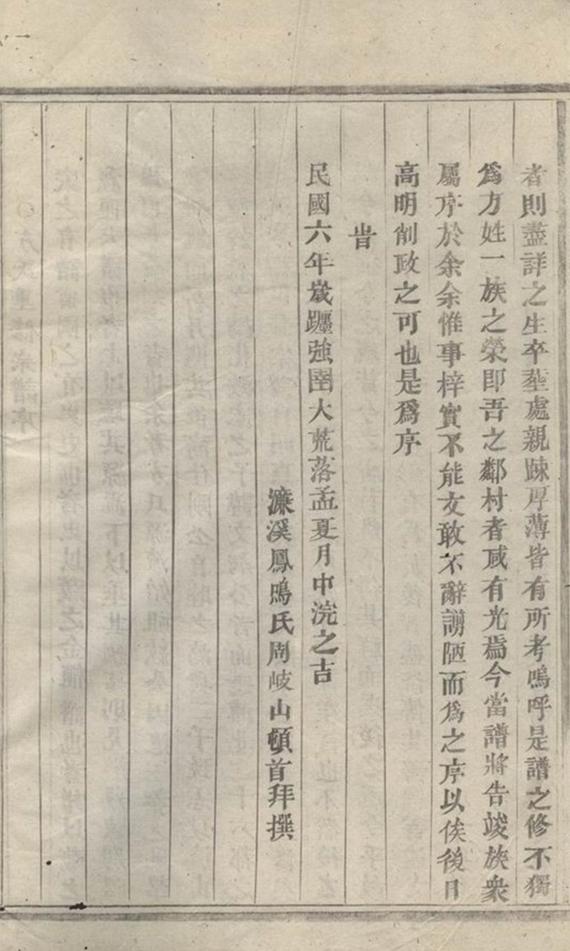 者則盡詳之生卒塟處親踈厚薄皆有所考嗚呼是譜之修不獨
爲方姓一族之榮即吾之鄰村者咸有光焉今當譜將告竣族衆
屬序於余余惟事梓實不能文敢不辭謭陋而爲之序以俟後日
高明削政之可也是爲序
旹
民國六年歲躔強圉大荒落孟夏月中浣之吉
濂溪鳳鳴氏周岐山頓首拜撰